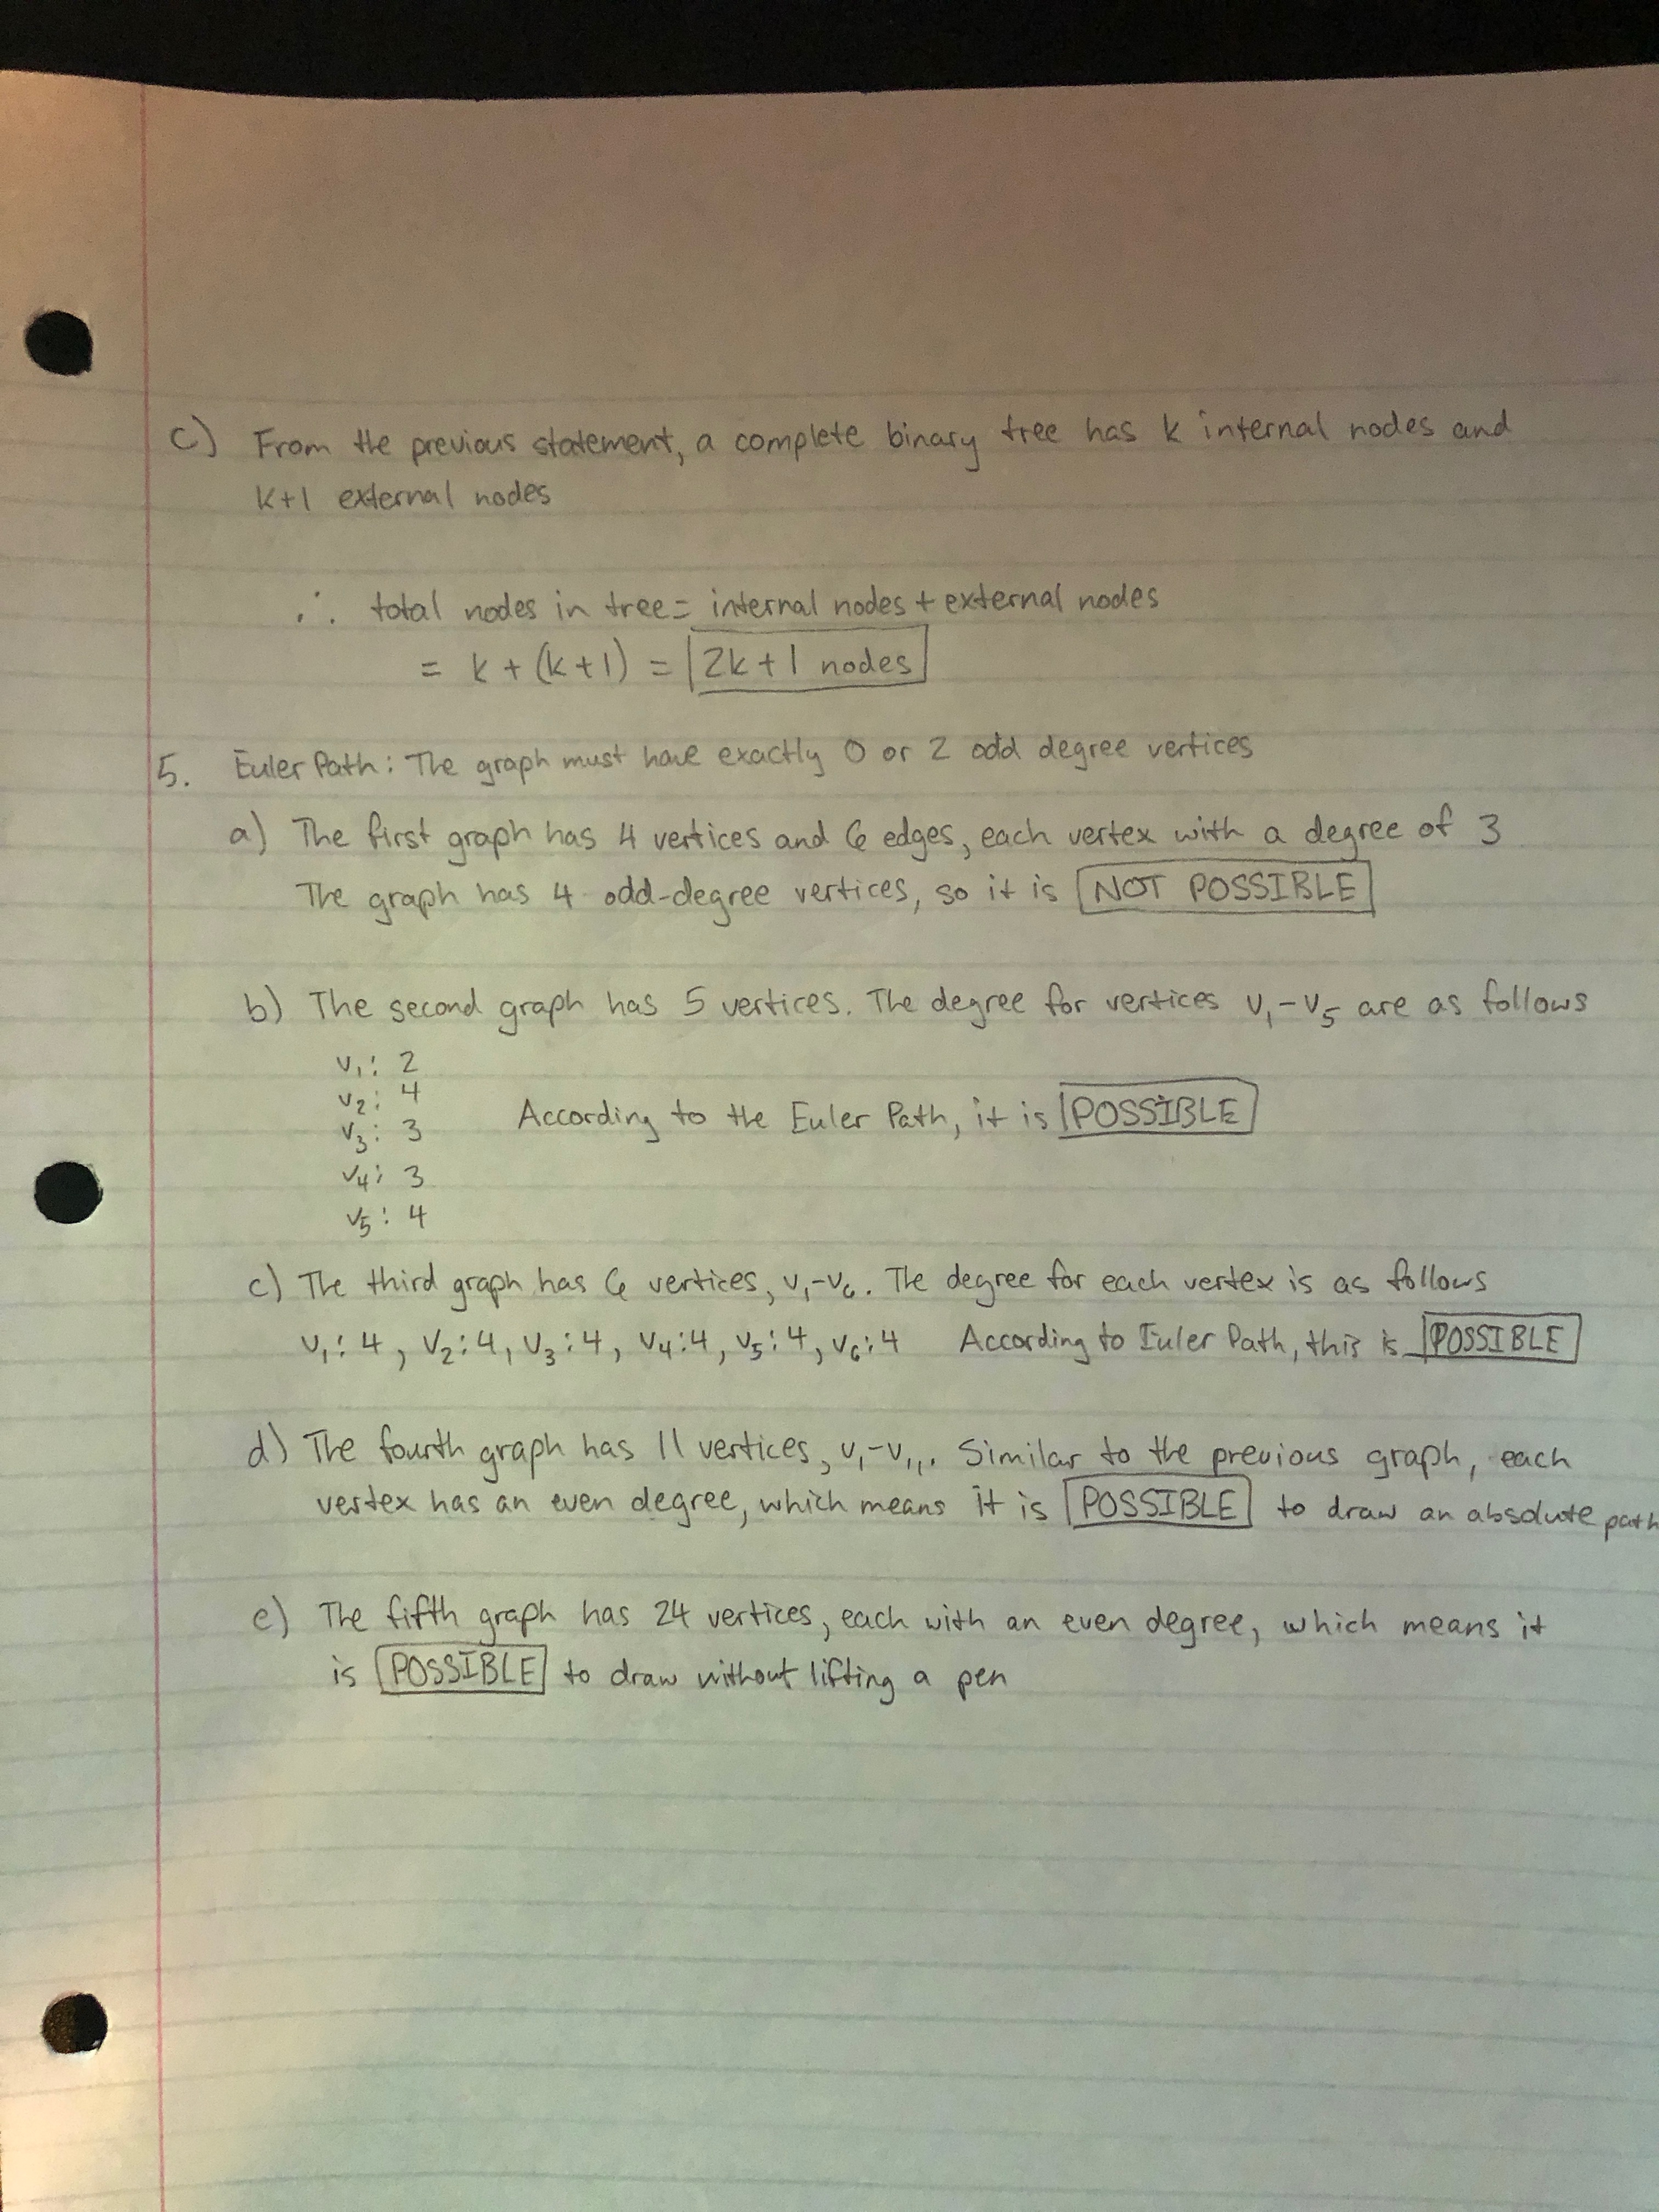 c) From the previous statement, a complete binary tree has k internal nodes and
k+1 external nodes
∴ total nodes in tree = internal nodes + external nodes
= k + (k+1) = 2k+1 nodes
5. Euler Path: The graph must have exactly 0 or 2 odd degree vertices
a) The first graph has 4 vertices and 6 edges, each vertex with a degree of 3
The graph has 4 odd-degree vertices, so it is NOT POSSIBLE
b) The second graph has 5 vertices. The degree for vertices v₁-v₅ are as follows
v₁: 2
v₂: 4
v₃: 3 According to the Euler Path, it is POSSIBLE
v₄: 3
v₅: 4
c) The third graph has 6 vertices, v₁-v₆. The degree for each vertex is as follows
v₁: 4, v₂: 4, v₃: 4, v₄: 4, v₅: 4, v₆: 4 According to Euler Path, this is POSSIBLE
d) The fourth graph has 11 vertices, v₁-v₁₁. Similar to the previous graph, each
vertex has an even degree, which means it is POSSIBLE to draw an absolute path
e) The fifth graph has 24 vertices, each with an even degree, which means it
is POSSIBLE to draw without lifting a pen